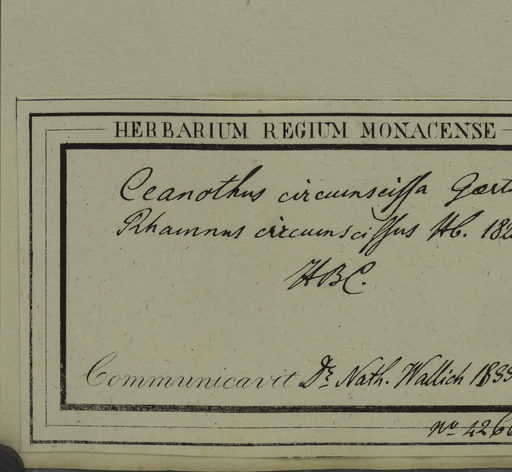 HERBARIUM REGIUM MONACENSE
Ceanothus circumscissa Gært
Rhamnus circumscissus Hb. 182
HBC.
Communicavit Dr. Nath. Wallich 183
no 426